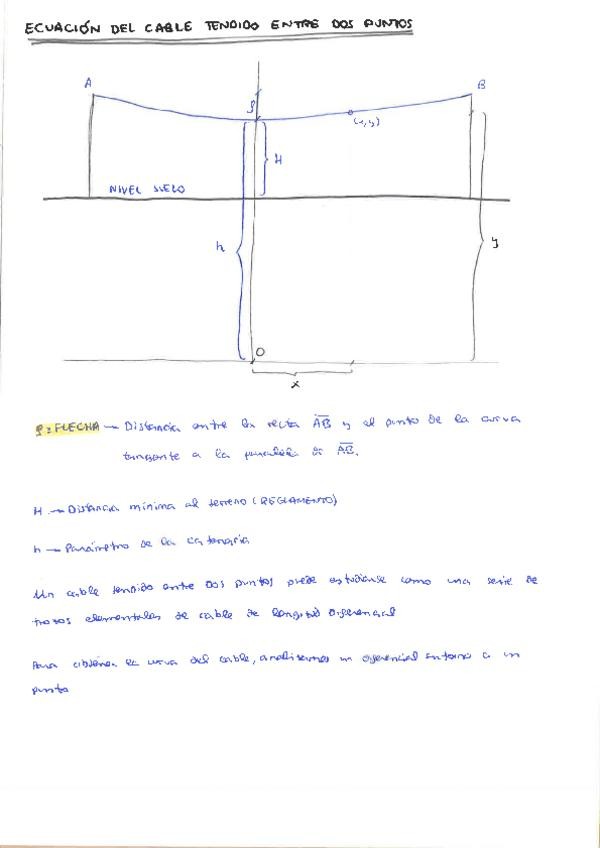 ECUACIÓN DEL CABLE TENDIDO ENTRE DOS PUNTOS
A
B
f
(x,y)
H
NIVEL SUELO
h
y
O
x
f = FLECHA → Distancia entre la recta AB y el punto de la curva
tangente a la paralela a AB.
H → Distancia mínima al terreno (REGLAMENTO)
h → Parámetro de la catenaria
Un cable tendido entre dos puntos puede estudiarse como una serie de
trozos elementales de cable de longitud diferencial
Para obtener la curva del cable, analizamos un diferencial entorno a un
punto